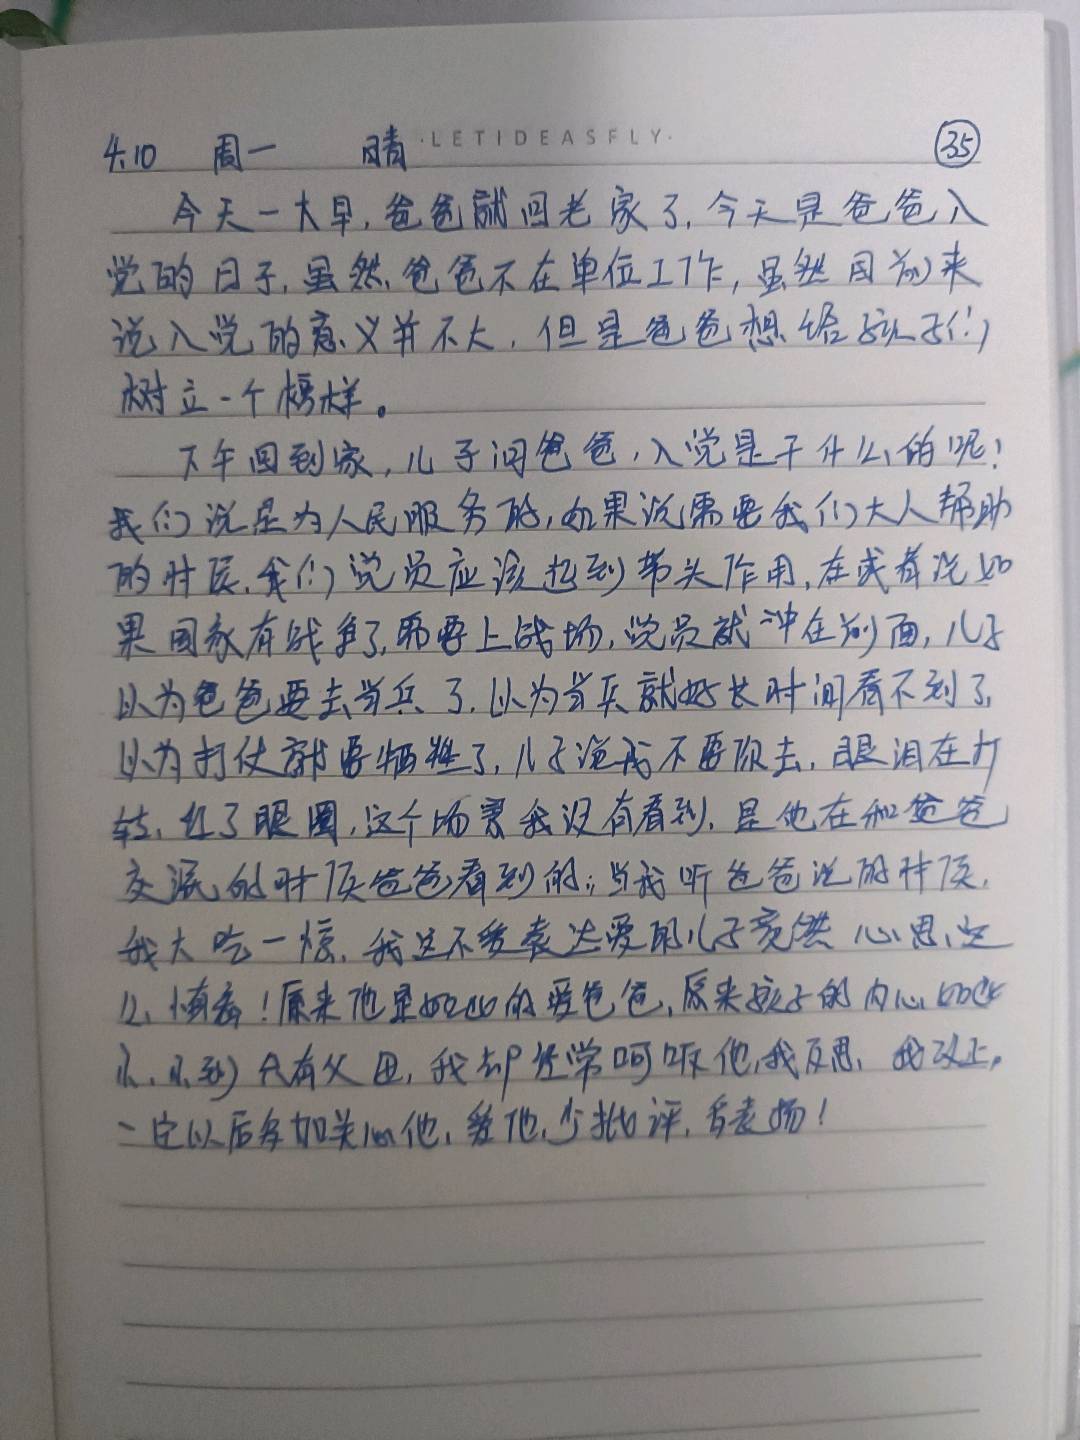 4.10 周一 晴 ·LETIDEASFLY· 35
今天一大早，爸爸就回老家了，今天是爸爸入
党的日子，虽然，爸爸不在单位工作，虽然目前来
说入党的意义并不大，但是爸爸想给孩子们
树立一个榜样。
下午回到家，儿子问爸爸，入党是干什么的呢！
我们说是为人民服务的，如果说需要我们大人帮助
的时候，我们党员应该起到带头作用，在或者说如
果国家有战争了，需要上战场，党员就冲在前面，儿子
以为爸爸要去当兵了，以为当兵就好长时间看不到了，
以为打仗就要牺牲了，儿子说我不要你去，眼泪在打
转，红了眼圈，这个场景我没有看到，是他在和爸爸
交流的时候爸爸看到的；当我听爸爸说的时候，
我大吃一惊，我这不爱表达爱的儿子竟然心思这
么，！原来他是如此的爱爸爸，原来孩子的内心如此
小，小到只有父母，我却经常呵呸他，我反思，我改正，
一定以后多加关心他，爱他，少批评，多表扬！